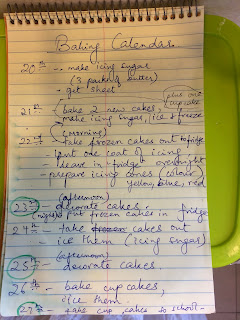 Baking Calendar
20th - - make icing sugar
(3 parts butter)
- get sheet
plus one cupcake
21st - bake 2 new cakes
make icing sugar, ice & freeze
(morning)
22nd - take frozen cakes out to fridge
- put one coat of icing.
- leave in fridge overnight
- prepare icing cones (colour)
yellow, blue, red
(afternoon)
23rd - decorate cakes.
(night) Put frozen cakes in fridge
24th - take frozen cakes out
- ice them (icing sugar)
(afternoon)
25th - decorate cakes.
26th - bake cup cakes,
ice them.
27th - take cup cakes to school -